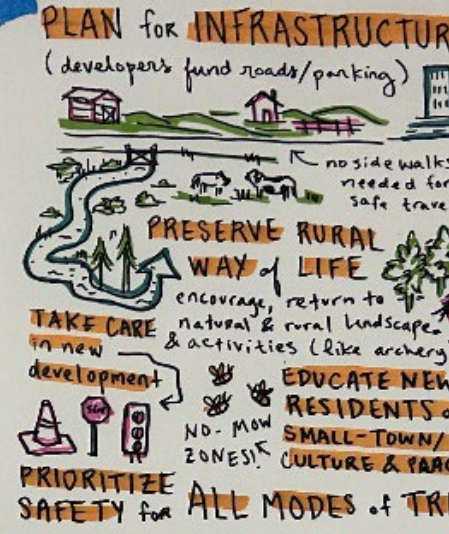 PLAN for INFRASTRUCTUR
(developers fund roads/parking)
no sidewalks
needed for
safe trave
PRESERVE RURAL
WAY of LIFE
encourage, return to
natural & rural landscape.
& activities (like archery
TAKE CARE
in new
development
STOP
NO-MOW
ZONES!
EDUCATE NEW
RESIDENTS o
SMALL-TOWN/
CULTURE & PRAC
PRIORITIZE
SAFETY for ALL MODES of TR